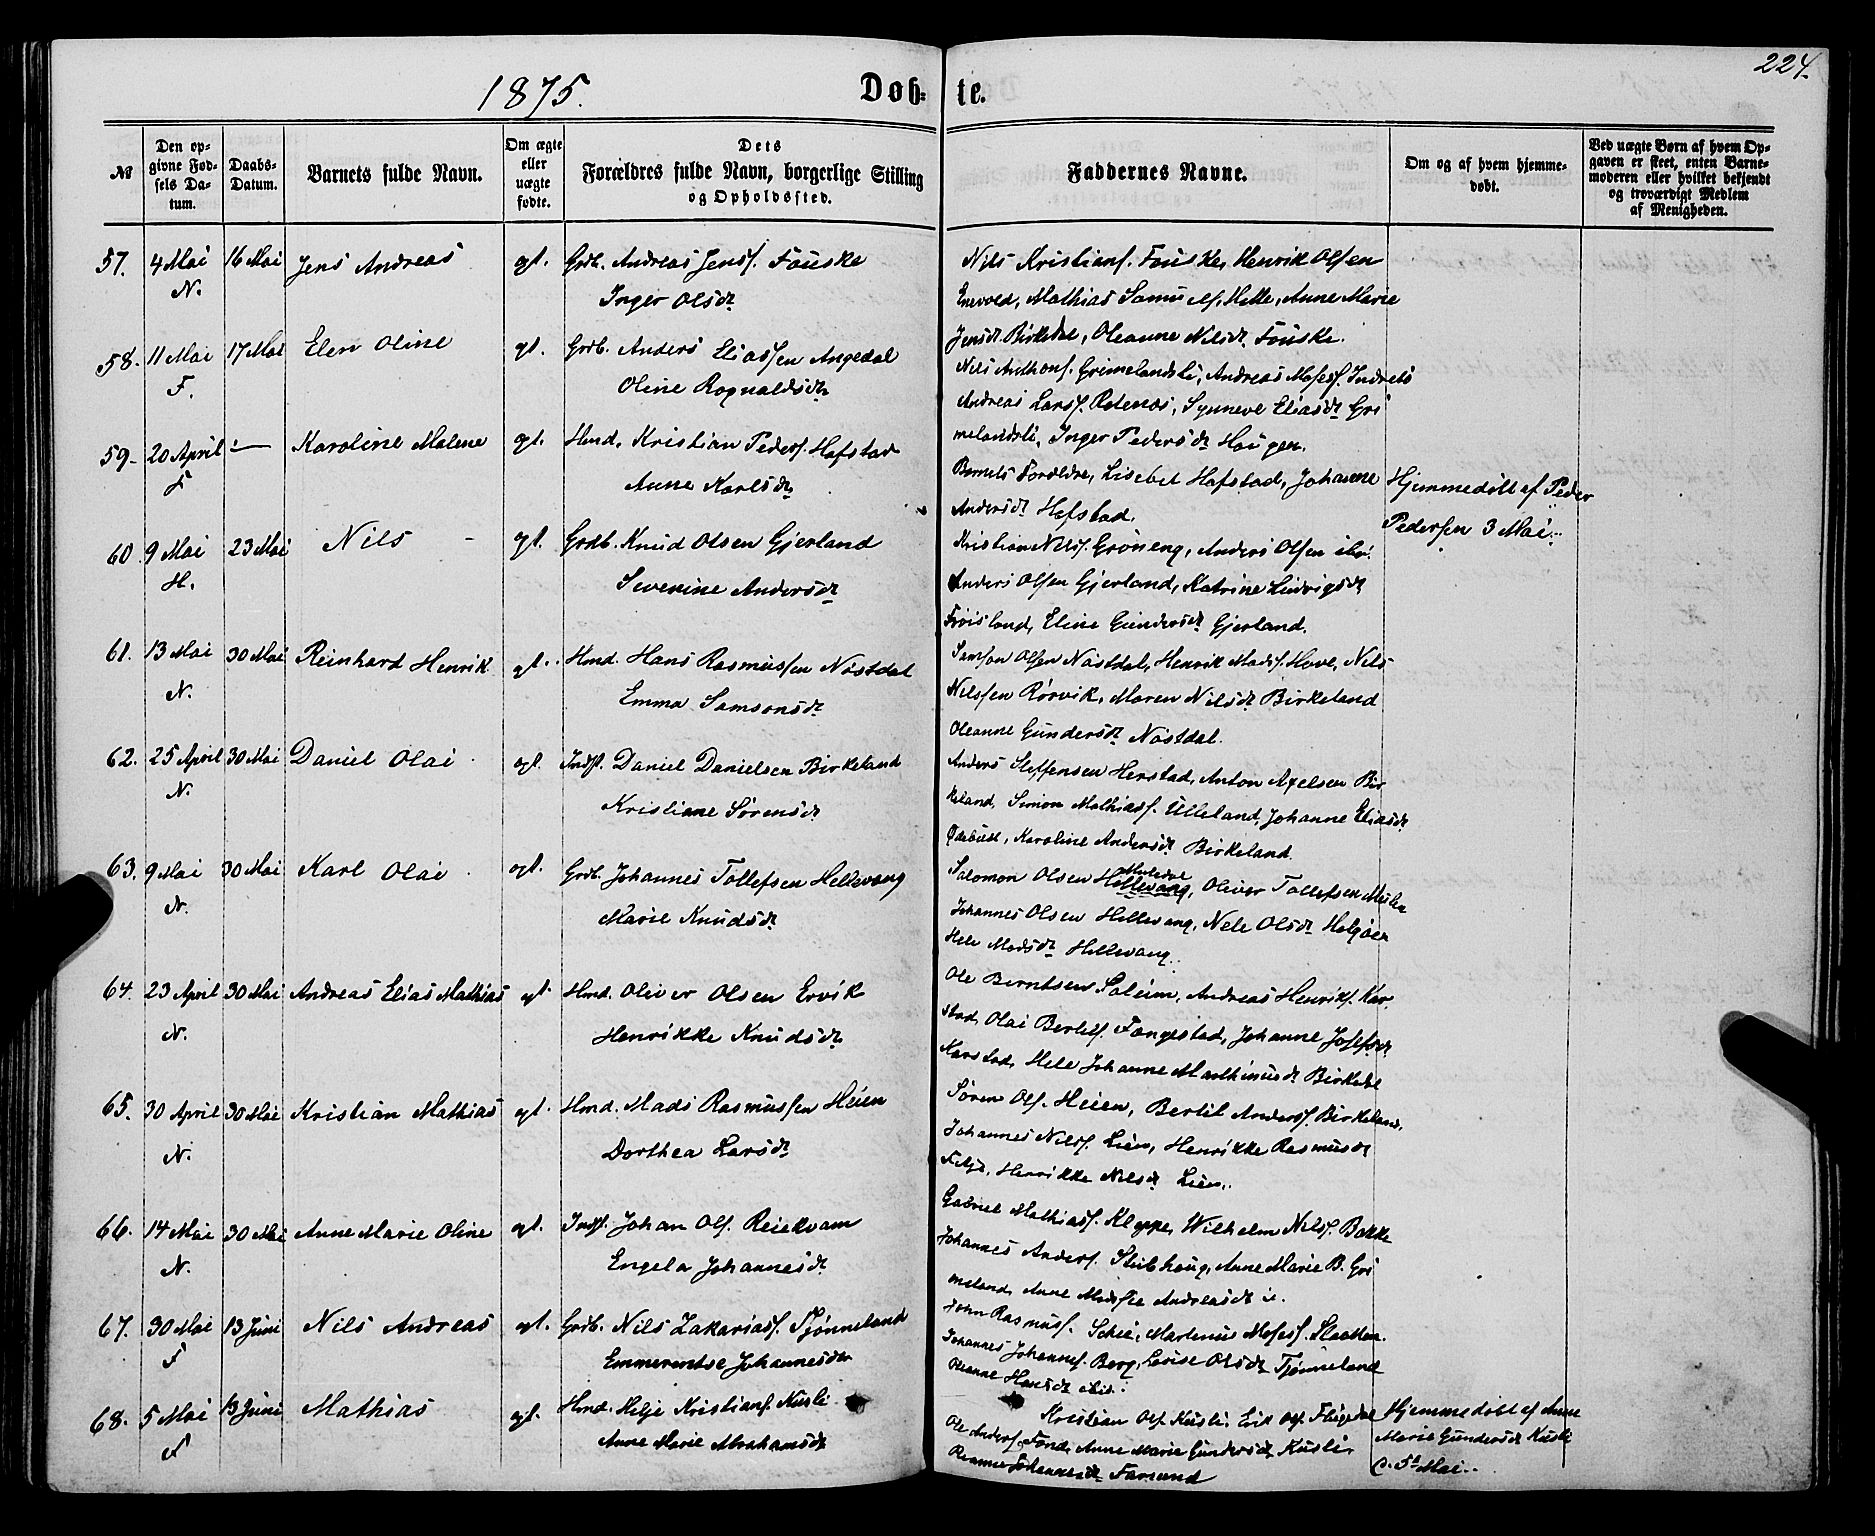 224.
1875.
Døb- te.
No
Den opgivne Fødsels Datum.
Daabs-Datum.
Barnets fulde Navn.
Om ægte eller uægte fødte.
Dets Forældres fulde Navn, borgerlige Stilling og Opholdssted.
Faddernes Navne.
Om og af hvem hjemmedøbt.
Ved uægte Børn af hvem Opgaven er skeet, enten Barnemoderen eller hvilket bekjendt og troværdigt Medlem af Menigheden.
57. 4 Mai 16 Mai Jens Andreas ægt. Grdb. Andreas Jensf. Fauske
N. Inger Olsdr
Nils Kristianf. Fauske, Henrik Olsen
Enevold, Mathias Samuelf. Helle, Anne Marie
Jensdr Birkedal, Oleanne Nilsdr. Fauske.
58. 11 Mai 17 Mai Elen Oline ægt. Grdb. Anders Eliassen Angedal
F. Oline Rognaldsdr
Nils Anthonf. Grimelandsli, Andreas Mosesf. Indrebö
Andreas Larsf. Rotenæs, Synneve Eliasdr Gri
melandsli, Inger Pedersdr Haugen.
59. 20 April — Karoline Malene ægt. Hmd. Kristian Pedersf. Hafstad
F Anne Karlsdr
Barnets Forældre, Lisebet Hafstad, Johanne
Andersdr Hafstad.
Hjemmedöbt af Peder
Pedersen 3 Mai.
60 9 Mai 23 Mai Nils ægt. Grdb. Knud Olsen Gjerland
H. Severine Andersdr
Kristian Nilsf. Gröneng, Anders Olsen ibd.
Anders Olsen Gjerland, Katrine Ludvigsdr
Fröisland, Eline Gundersdr Gjerland.
61. 13 Mai 30 Mai Reinhard Henrik ægt. Hmd. Hans Rasmussen Nöstdal
N. Emma Samsonsdr
Samson Olsen Nöstdal, Henrik Madsf. Hove, Nils
Nilssen Rörvik, Maren Nilsdr Birkeland
Oleanne Gundersdr Nöstdal.
62. 25 April 30 Mai Daniel Olai ægt. Indst. Daniel Danielsen Birkeland
N. Kristiane Sörensdr
Anders Steffensen Herstad, Anton Axelsen Bir
keland, Simon Mathiasf. Ulleland, Johanne Eliasdr
Ødebust, Karoline Andersdr Birkeland.
63. 9 Mai 30 Mai Karl Olai ægt. Grdb. Johannes Tollefsen Hellevang
N. Marie Knudsdr
Salomon Olsen Hellevang, Oliver Tollefsen
Johannes Olsen Hellevang, Nele Olsdr Helgöen
Hele Madsdr Hellevang.
64. 23 April 30 Mai Andreas Elias Mathias ægt. Hmd. Oliver Olsen Ervik
N. Henrikke Knudsdr
Ole Berntsen Soleim, Andreas Henrikf. Kar
stad, Olai Bertelf. Fangestad, Johanne Josefsdr
Karstad, Hele Johanne Marthinusdr Birkedal
65. 30 April 30 Mai Kristian Mathias ægt. Hmd. Mads Rasmussen Heien
N. Dorthea Larsdr
Sören Olf. Heien, Bertil Andersf. Birkeland,
Johannes Nilsf. Lien, Henrikke Rasmusdr
Henrikke Nilsdr Lien.
66. 14 Mai 30 Mai Anne Marie Oline ægt. Indst. Johan Olf. Reiekvam
N. Engela Johannesdr
Gabriel Mathiasf. Kleppe, Wilhelm Nilsf. Bakke
Johannes Andersf. Stubhaug, Anne Marie B. Gri
meland, Anne Andreasdr
67. 30 Mai 13 Juni Nils Andreas ægt. Grdb. Nils Zakariasf. Tjönneland
F Emmerentse Johannesdr
John Rasmusf. Schei, Martenus Mosesf. Slaatten
Johannes Johannesf. Berg, Lovise Olsdr Tjönneland
Oleanne Hansdr ibid.
68. 5 Mai 13 Juni Mathias ægt. Hmd. Helje Kristianf. Kusli
F Anne Marie Abrahamsdr
Kristian Olf. Kusli, Erik Olf. Flugedal
Ole Andersf. Fond, Anne Marie Gundersdr Kusli,
Oleanne Johannesdr Farsund
Hjemmedöbt af Anne
Marie Gundersdr Kusli
d. 5t Mai.